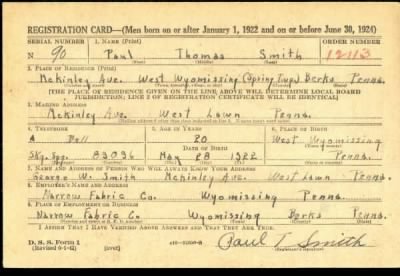 REGISTRATION CARD—(Men born on or after January 1, 1922 and on or before June 30, 1924)
SERIAL NUMBER 1. NAME (Print) ORDER NUMBER
N 90 Paul Thomas Smith 12113
2. PLACE OF RESIDENCE (Print)
McKinley Ave. West Wyomissing (Spring Twp.) Berks Penna.
[THE PLACE OF RESIDENCE GIVEN ON THE LINE ABOVE WILL DETERMINE LOCAL BOARD
JURISDICTION; LINE 2 OF REGISTRATION CERTIFICATE WILL BE IDENTICAL]
3. MAILING ADDRESS
McKinley Ave. West Lawn Penna.
4. TELEPHONE 5. AGE IN YEARS 6. PLACE OF BIRTH
Bell 20 West Wyomissing
83096 May 28 1922 Penna.
7. NAME AND ADDRESS OF PERSON WHO WILL ALWAYS KNOW YOUR ADDRESS
George W. Smith McKinley Ave. West Lawn Penna.
8. EMPLOYER'S NAME AND ADDRESS
Narrow Fabric Co. Wyomissing Penna.
9. PLACE OF EMPLOYMENT OR BUSINESS
Narrow Fabric Co. Wyomissing Berks Penna.
I AFFIRM THAT I HAVE VERIFIED ABOVE ANSWERS AND THAT THEY ARE TRUE.
D. S. S. Form 1
(Revised 6-1-42) (over) Paul T. Smith